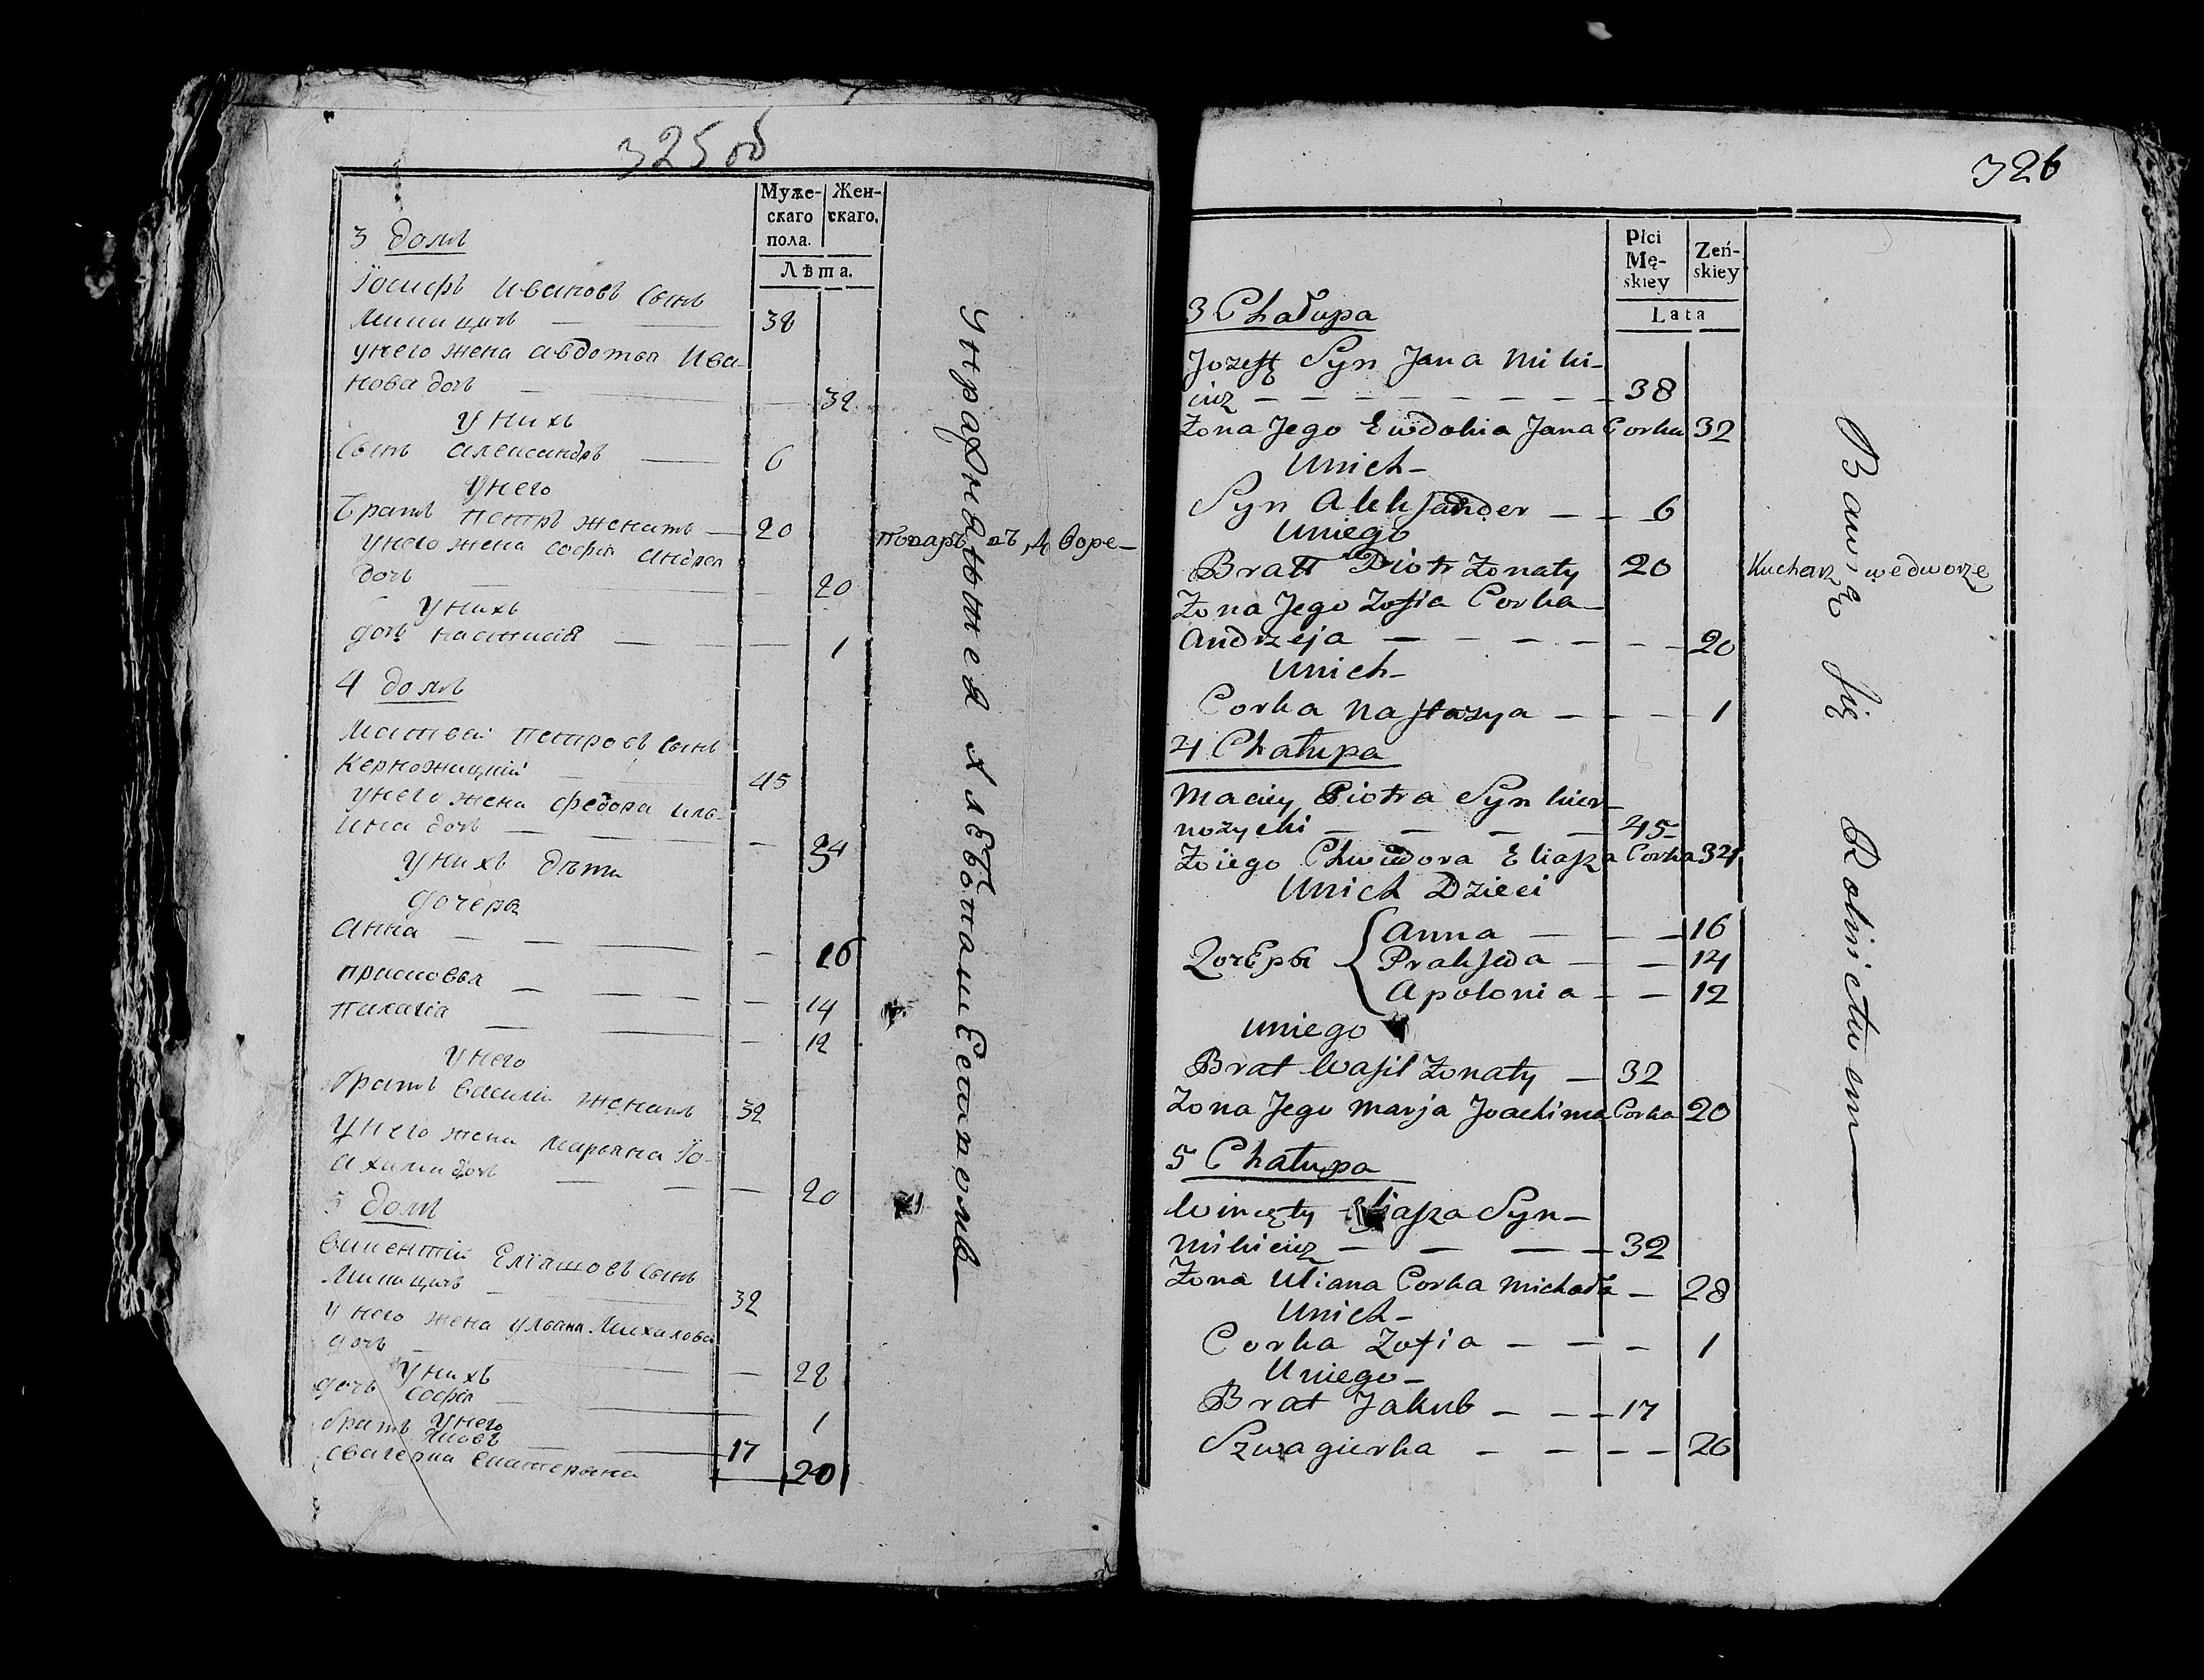 325 об
Муже-
скаго
пола.
Жен-
скаго.
Лѣта.
3 домъ
Іосифъ Ивановъ сынъ
Миницичъ — — 38
у него жена Авдотья Ива-
нова дочь — — 32
у нихъ
сынъ Александръ — 6
у него
братъ Петръ женатъ — 20
Поваръ въ дворе —
у него жена Софія Андрея
дочь — — 20
у нихъ
дочь Настасія — — 1
4 домъ
Матвей Петровъ сынъ
Керножицкій — 45
у него жена Федора Иль-
ина дочь — — 34
у нихъ дѣти
дочера
Анна — — — 16
Присковья — — — 14
Палагія — — — 12
у него
братъ Василій женатъ 32
у него жена Марьяна Іо-
ахима дочь — — — 20
5 домъ
Викентій Еліашовъ сынъ
Миницичъ — 32
у него жена Ульана Михалова
дочь — — 28
у нихъ
дочь Софія — 1
у него
братъ Яковъ — — 17
свагерка Екатерына 20
Упражняются хлѣбопашествомъ
326
Płci
Mę-
skiey
Zeń-
skiey
Lata
3 Chałupa
Jozeff Syn Jana Miki-
cicz — — — — — — — 38
Zona Jego Ewdokia Jana Corka 32
Unich —
Syn Alekſander — — 6
Uniego
Bratt Piotr Zonaty 20
Kucharz we dworze
Zona Jego Zofia Corka —
Andrzeja — — — — — — 20
Unich —
Corka Naſtazya — — — 1
4 Chałupa
Maciey Piotra Syn Kier-
nożycki — — — — 45
Zo iego Chwiedora Eliaſza Corka 34
Unich Dzieci
Дочеры { Anna — — — 16
Prakſeda — — 14
Apolonia — — 12
uniego
Brat Waſil Zonaty — 32
Zona Jego Marja Joachima Corka 20
5 Chałupa
Wincęty Eliaſza Syn —
Mikicicz — — — — 32
Zona Uliana Corka Michała — 28
Unich —
Corka Zofia — — — 1
Uniego —
Brat Jakub — — — 17
Szwagierka — — — — 20
Bawię ſię Rolnictwem —